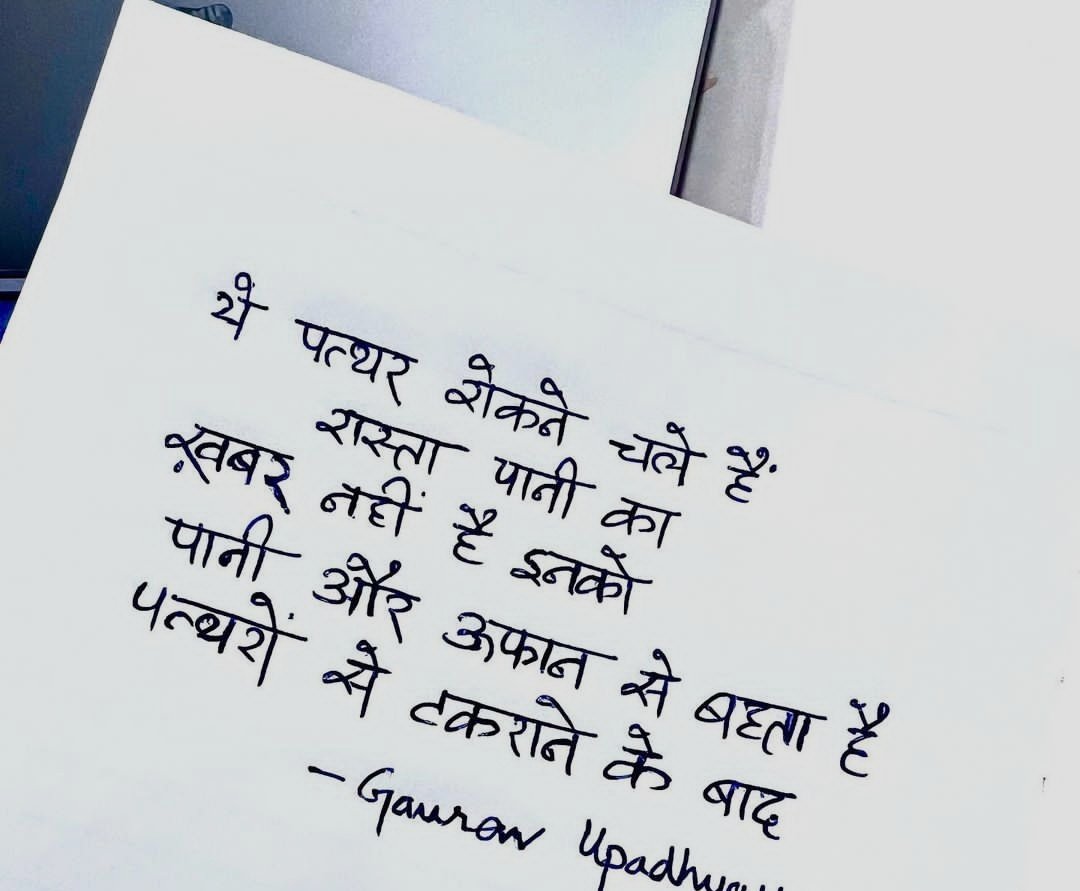 ये पत्थर रोकने चले हैं
रास्ता पानी का
ख़बर नहीं है इनको
पानी और ऊफान से बहता है
पत्थरों से टकराने के बाद
- Gaurav